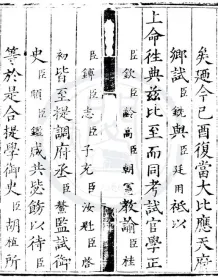 矣廼今己酉復當大比應天府
鄉試臣銑與臣廷用祗以
上命徃典兹比至而同考試官學正
臣欽臣齡高臣朝冕教諭臣桂
臣鏄臣志臣子充臣汝尠臣啓
初皆至提調府丞臣鏊監試御
史臣頤臣鑑咸共𠖥飭以待臣
等於是合提學御史臣胡植所